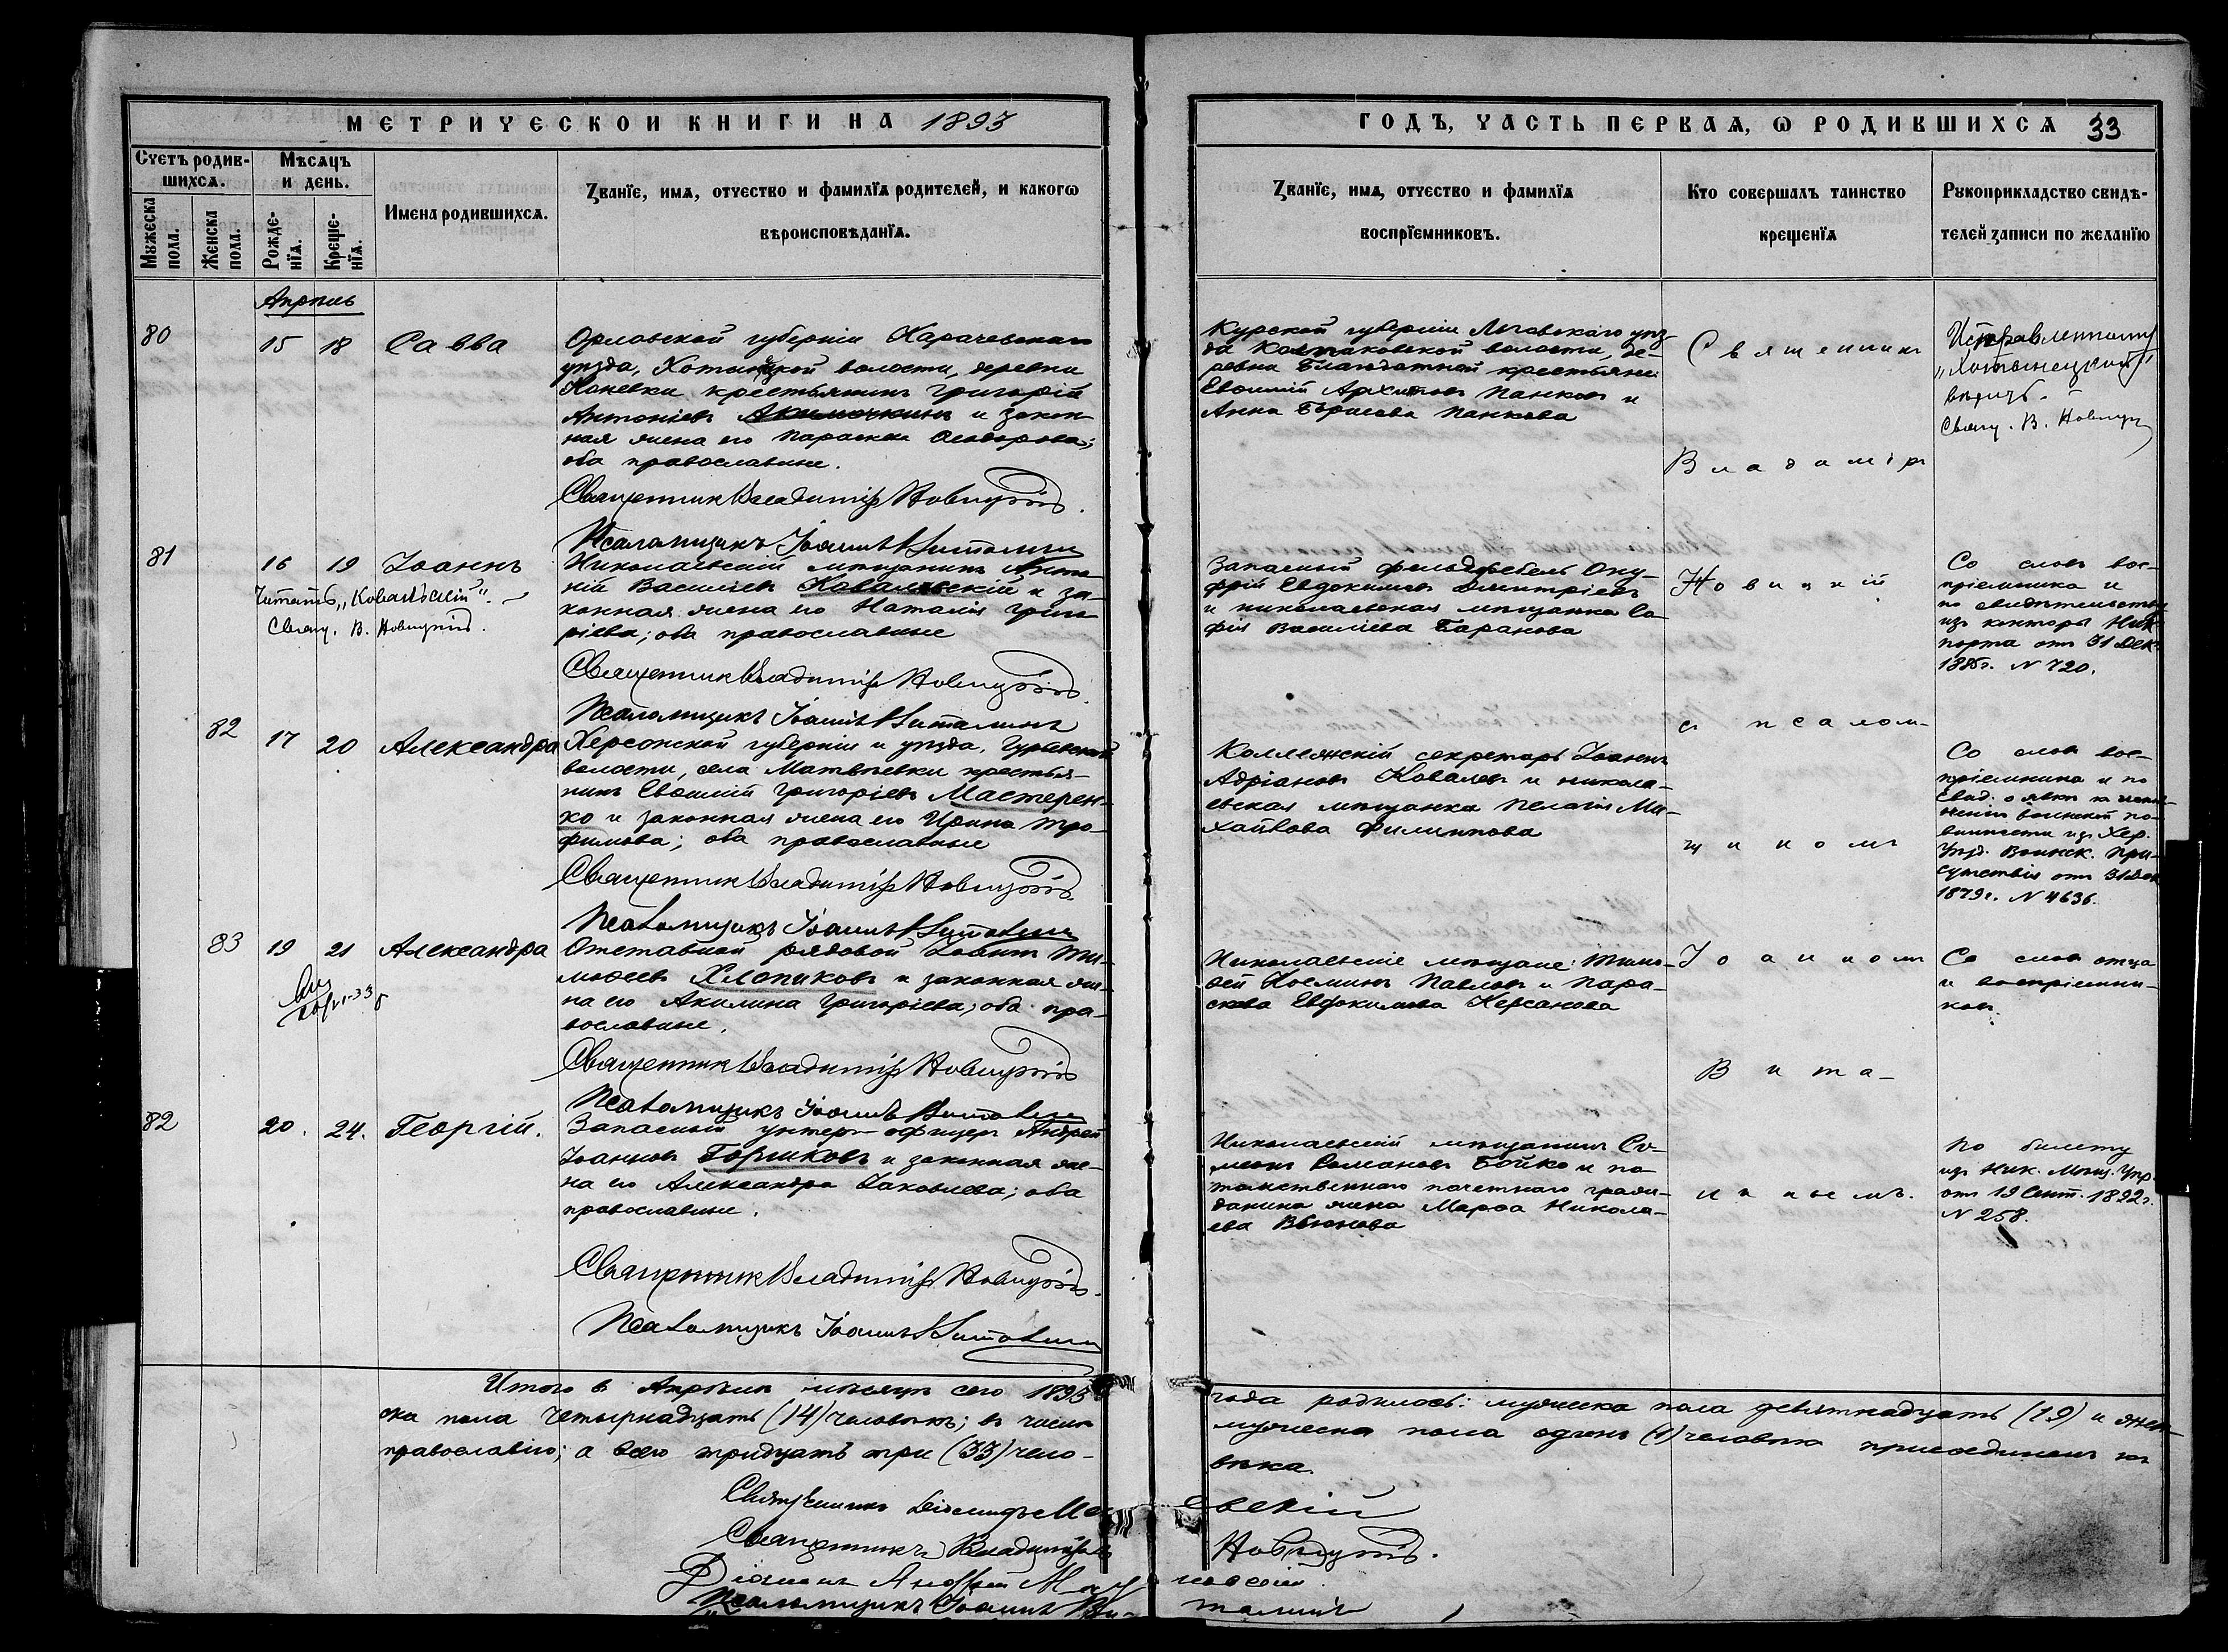 МЕТРИЧЕСКОЙ КНИГИ НА 1893
ГОДЪ, ЧАСТЬ ПЕРВАѦ, Ѡ РОДИВШИХСѦ 33
Счетъ родив-
шихсѧ.
Мѣсѧцъ
и день.
Мужеска
пола.
Женска
пола.
Рожде-
нїѧ.
Креще-
нїѧ.
Имена родившихсѧ.
Званїе, имѧ, отчество и фамилїѧ родителей, и какогѡ
вѣроисповѣданїѧ.
Званїе, имѧ, отчество и фамилїѧ
воспрїемниковъ.
Кто совершалъ таинство
крещенїѧ
Рукоприкладство свидѣ-
телей записи по желанїю
Апрѣль
80
15 18 Савва
Орловской губерніи Карачевскаго
уѣзда, Хотынецкой волости, деревни
Коневки крестьянинъ Григорій
Антоніевъ Акимочкинъ и закон-
ная жена его Параскева Ѳеодорова;
оба православные.
Священникъ Владиміръ Новицкій.
Псаломщикъ Іоаннъ Виталинъ
Курской губерніи Льговскаго уѣз-
да Колпаковской волости, де-
ревни Благодатной крестьяне:
Евѳимій Архиповъ Панковъ и
Анна Борисова Панкова
Священникъ
Владиміръ
Исправленному
„Хотынецкой"
вѣрить.
Свящ. В. Новицкій
81
16 19 Іоаннъ
Читать „Ковальскій".
Свящ. В. Новицкій.
Николаевскій мѣщанинъ Анто-
ній Василіевъ Ковальскій и за-
конная жена его Наталія Григо-
ріева; оба православные
Священникъ Владиміръ Новицкій
Псаломщикъ Іоаннъ Виталинъ
Запасный фельдфебель Ону-
фрій Евдокимовъ Димитріевъ
и николаевская мѣщанка Со-
фія Василіева Баранова
Новицкій
Со словъ вос-
пріемника и
по свидѣтельству
изъ конторы Ник.
порта отъ 31 Дек.
N 720.
82
17 20 Александра
Херсонской губерніи и уѣзда,
волости, села Матвѣевки крестья-
нинъ Евѳимій Григоріевъ Мастерен-
ко и законная жена его Ирина Тро-
фимова; оба православные
Священникъ Владиміръ Новицкій.
Псаломщикъ Іоаннъ Виталинъ
Коллежскій секретарь Іоаннъ
Адріановъ Ковалевъ и никола-
евская мѣщанка Пелагія Ми-
хайлова Филиппова
съ псалом-
щикомъ
Со словъ вос-
пріемника и по
свид. о явкѣ къ испол-
ненію воинской по-
винности изъ Хер.
Уѣзд. Воинск. При-
сутствія отъ 31 Дек.
1879 г. N 4636.
83
19 21 Александра
Отставной рядовой Іоаннъ Ти-
моѳеевъ Хлопиковъ и законная же-
на его Акилина Григоріева; оба пра-
вославные.
Священникъ Владиміръ Новицкій
Псаломщикъ Іоаннъ Виталинъ
Николаевскіе мѣщане: Тимо-
ѳей Космина Павловъ и Пара-
скева Евдокимова Херсанова
Іоанномъ
Вита-
Со словъ отца
и воспріемни-
ковъ.
82
20. 24. Георгій.
Запасный унтеръ-офицеръ Андрей
Іоанновъ Горшковъ и законная же-
на его Александра Іаковлева; оба
православные.
Священникъ Владиміръ Новицкій.
Псаломщикъ Іоаннъ Виталинъ
Николаевскій мѣщанинъ Си-
меонъ Романовъ Бойко и по-
томственнаго почетнаго граж-
данина жена Марѳа Никола-
ева Вьюнова
линымъ.
По билету
изъ Ник. Мѣщ. Упр.
отъ 19 Сент. 1892 г.
N 258.
Итого въ Апрѣлѣ мѣсяцѣ сего 1893 года родилось: мужеска пола девятнадцать (19) и жен-
ска пола четырнадцать (14) человѣкъ; въ числѣ мужеска пола одинъ (1) человѣкъ присоединенъ къ
православію; а всего тридцать три (33) чело-вѣка.
Священникъ
Священникъ Владиміръ Новицкій.
Діаконъ Андрей
Псаломщикъ Іоаннъ Виталинъ